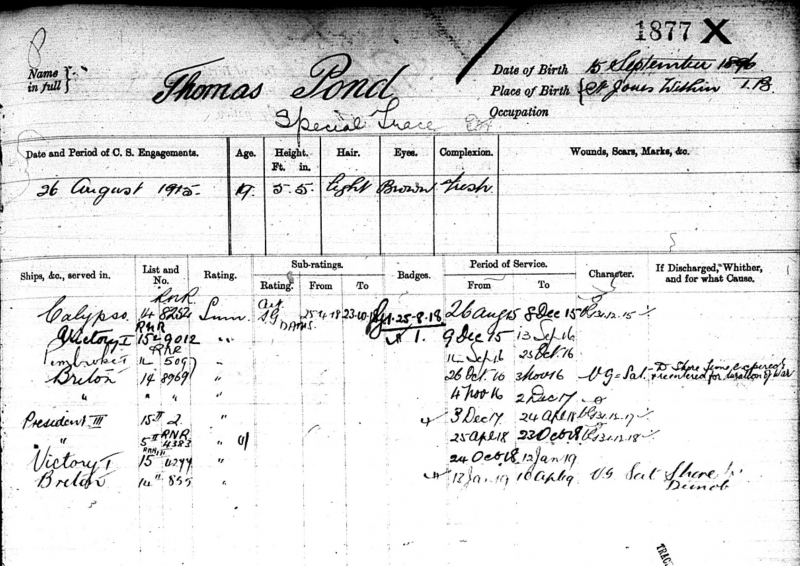 1877 X
Name in full
Thomas Pond
Date of Birth 15 September 1896
Place of Birth St Jones Within T.B.
Occupation
Special Trace
Date and Period of C. S. Engagements. Age. Height. Ft. in. Hair. Eyes. Complexion. Wounds, Scars, Marks, &c.
26 August 1915 19 5 5 light Brown Fresh
Ships, &c., served in. List and No. Rating. Sub-ratings. Rating. From To Badges. Period of Service. From To Character. If Discharged, Whither, and for what Cause.
Calypso RNR 14 8252 Smn SG 25 4 18 23-10-18 G 1-25-8-18 26 Aug 15 8 Dec 15 VG 31-12-15
Victory I RNR 15 9012 " 9 Dec 15 13 Sep 16
Pembroke I RNR 509 14 Sep 16 25 Oct 16
Briton 14 8969 " 26 Oct 16 3 Nov 16 VG - Sat - To Shore time expired & reentered for duration of War
" " " " 4 Nov 16 2 Dec 17
President III 15 2 " 3 Dec 17 24 Apl 18 VG 31-12-17
" 5 RNR 4383 " 25 Apl 18 23 Oct 18 VG 31-12-18
Victory I 15 " 24 Oct 18 12 Jan 19
Briton 14 855 " 13 Jan 19 10 Apl 19 VG Sat Shore
Demob
TRAC